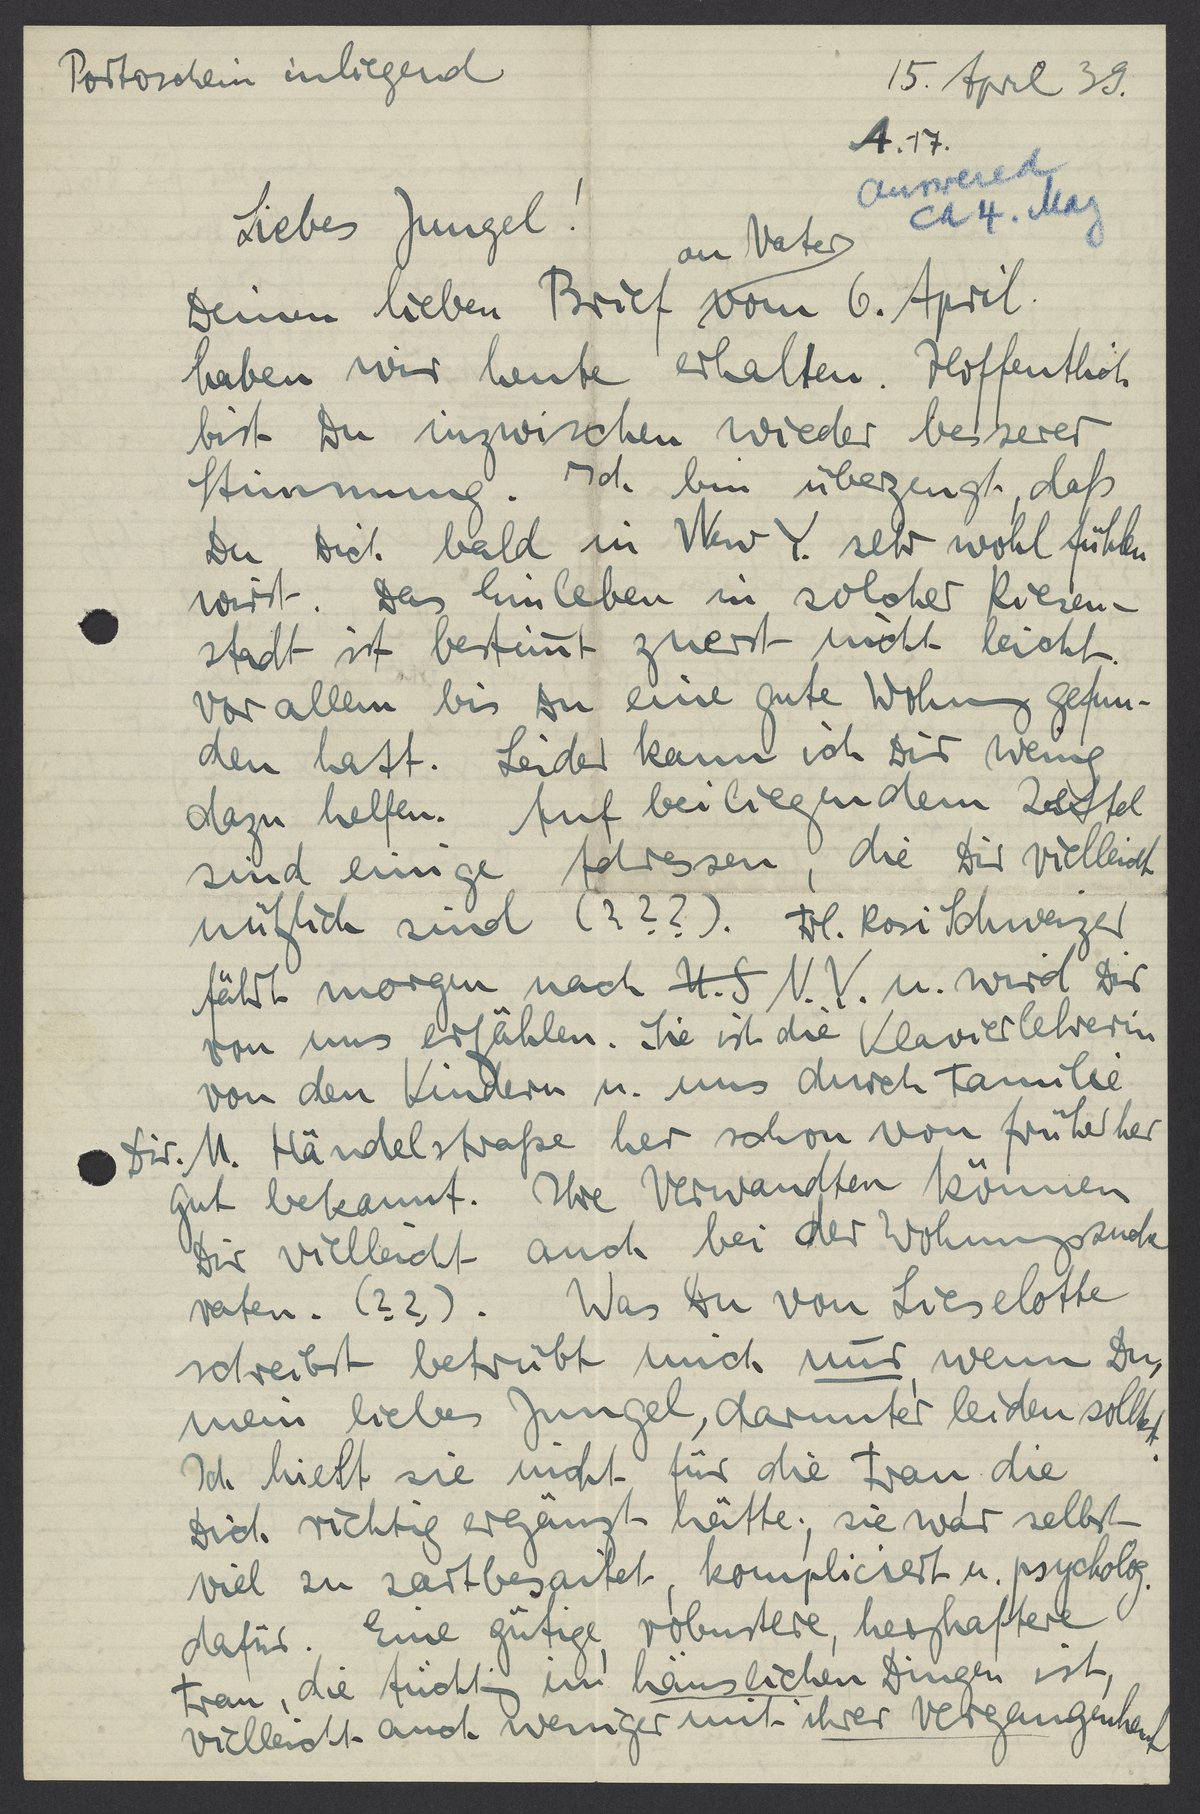 Portoschein inliegend
15. April 39.
A. 17.
answered
ca 4. May
Liebes Jungel!
an Vater
Deinen lieben Brief vom 6. April
haben wir heute erhalten. Hoffentlich
bist Du inzwischen wieder besserer
Stimmung. Ich bin überzeugt, daß
Du Dich bald in New Y. sehr wohl fühlen
wirst. Das Einleben in solcher Riesen-
stadt ist bestim̅t zuerst nicht leicht.
vor allem bis Du eine gute Wohnung gefun-
den hast. Leider kann ich Dir wenig
dazu helfen. Auf beiliegendem Zettel
sind einige Adressen, die Dir vielleicht
nützlich sind (???). Frl. Rosi Schweizer
fährt morgen nach U.S N.Y. u. wird Dir
von uns erzählen. Sie ist die Klavierlehrerin
von den Kindern u. uns durch Familie
Dir. M. Händelstraße her schon von früher her
gut bekannt. Ihre Verwandten können
Dir vielleicht auch bei der Wohnungssuche
raten. (??). Was Du von Lieselotte
schreibst betrübt mich nur, wenn Du,
mein liebes Jungel, darunter leiden solltest.
Ich hielt sie nicht für die Frau, die
Dich richtig ergänzt hätte; sie war selbst
viel zu zartbesaitet, kompliciert u. psycholog.
dafür. Eine gütige, robustere, herzhaftere
Frau, die tüchtig in häuslichen Dingen ist,
vielleicht auch weniger mit ihrer Vergangenheit